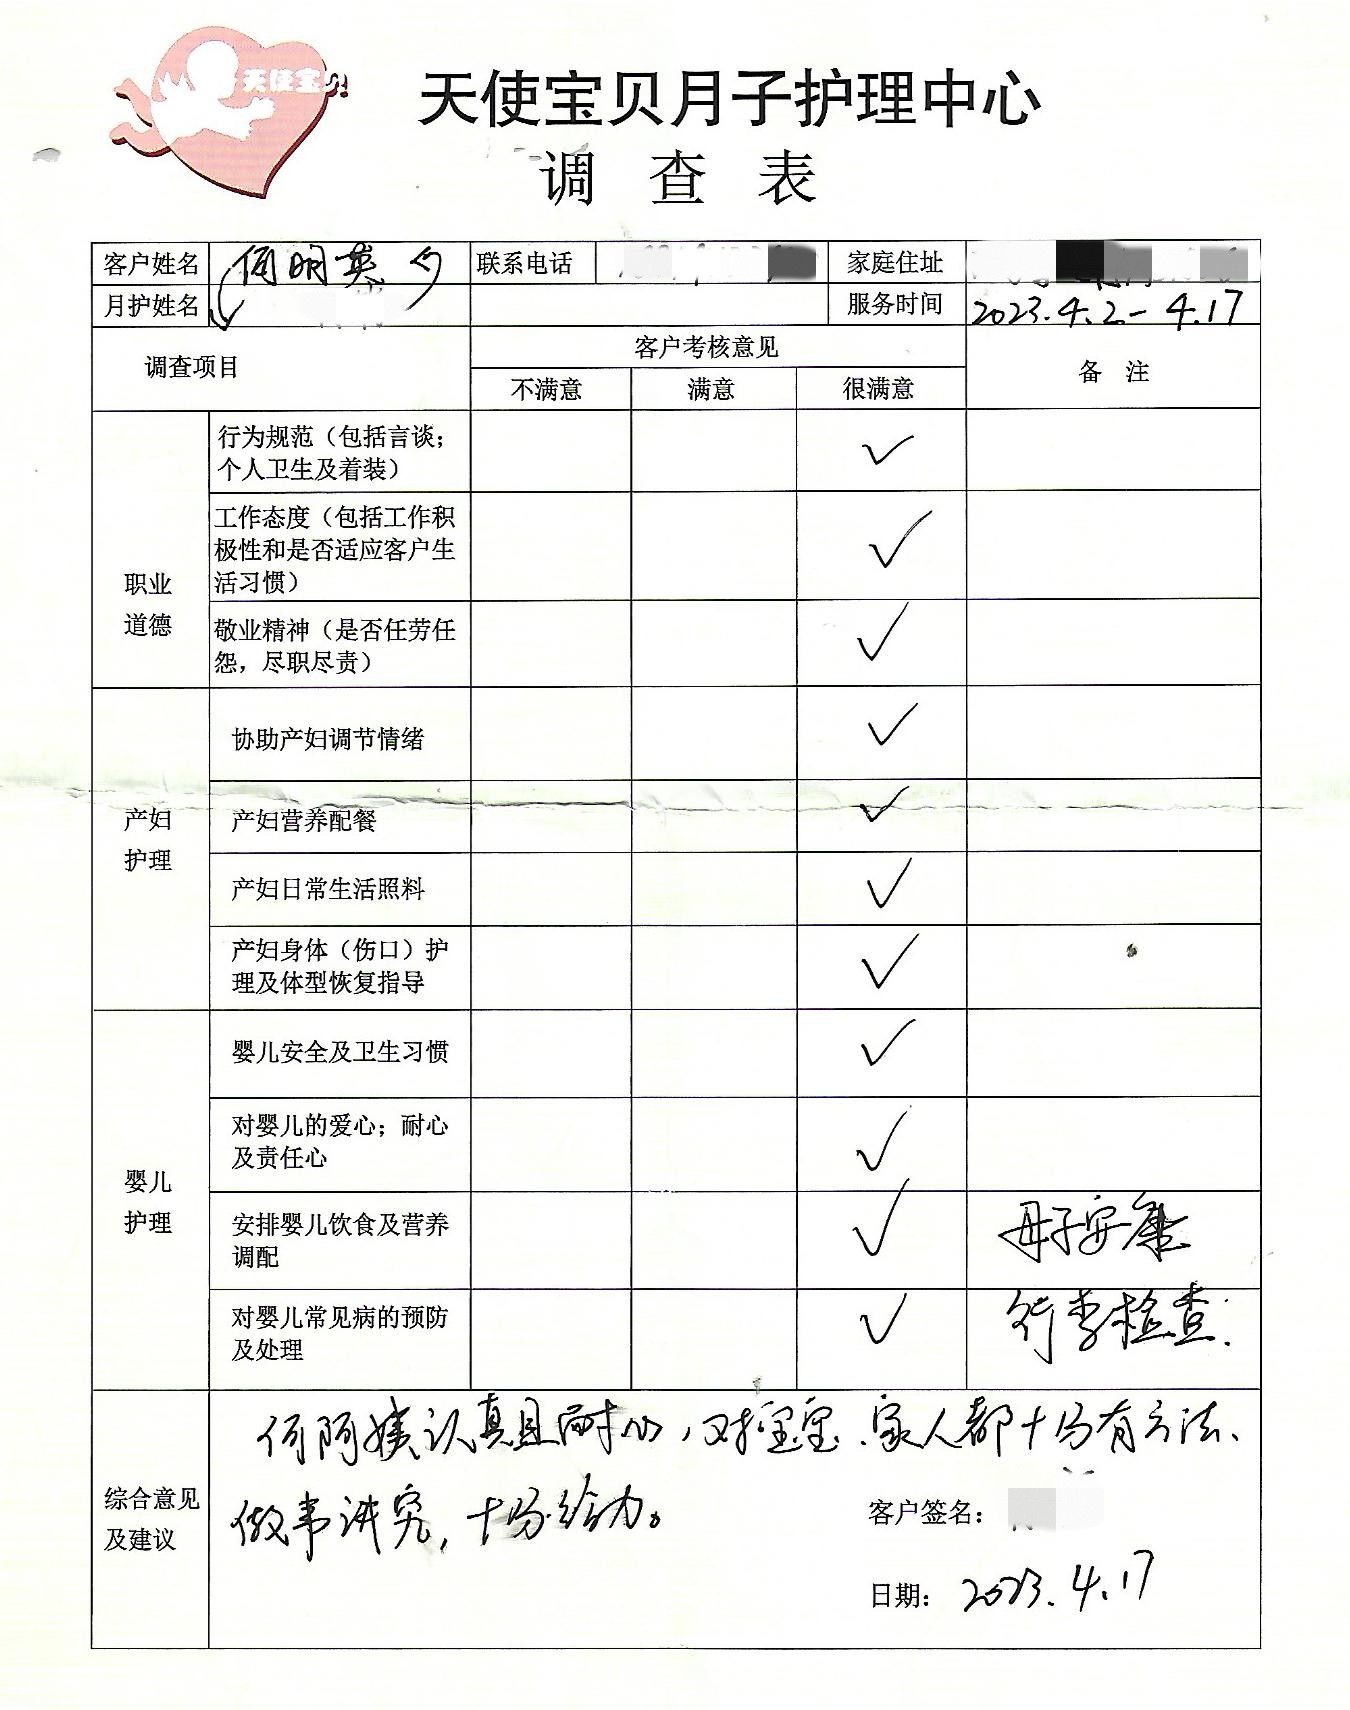 天使宝贝
天使宝贝月子护理中心
调查表
客户姓名 何明英 联系电话 家庭住址
月护姓名 服务时间 2023.4.2-4.17
调查项目 客户考核意见 备注
不满意 满意 很满意
职业道德
行为规范（包括言谈；
个人卫生及着装） ✓
工作态度（包括工作积
极性和是否适应客户生
活习惯） ✓
敬业精神（是否任劳任
怨，尽职尽责） ✓
产妇护理
协助产妇调节情绪 ✓
产妇营养配餐 ✓
产妇日常生活照料 ✓
产妇身体（伤口）护
理及体型恢复指导 ✓
婴儿护理
婴儿安全及卫生习惯 ✓
对婴儿的爱心；耐心
及责任心 ✓
安排婴儿饮食及营养
调配 ✓ 母子安康
对婴儿常见病的预防
及处理 ✓ 行李检查.
综合意见及建议
何阿姨认真且耐心，对宝宝、家人都十分有方法、
做事讲究，十分给力。
客户签名：
日期：2023.4.17